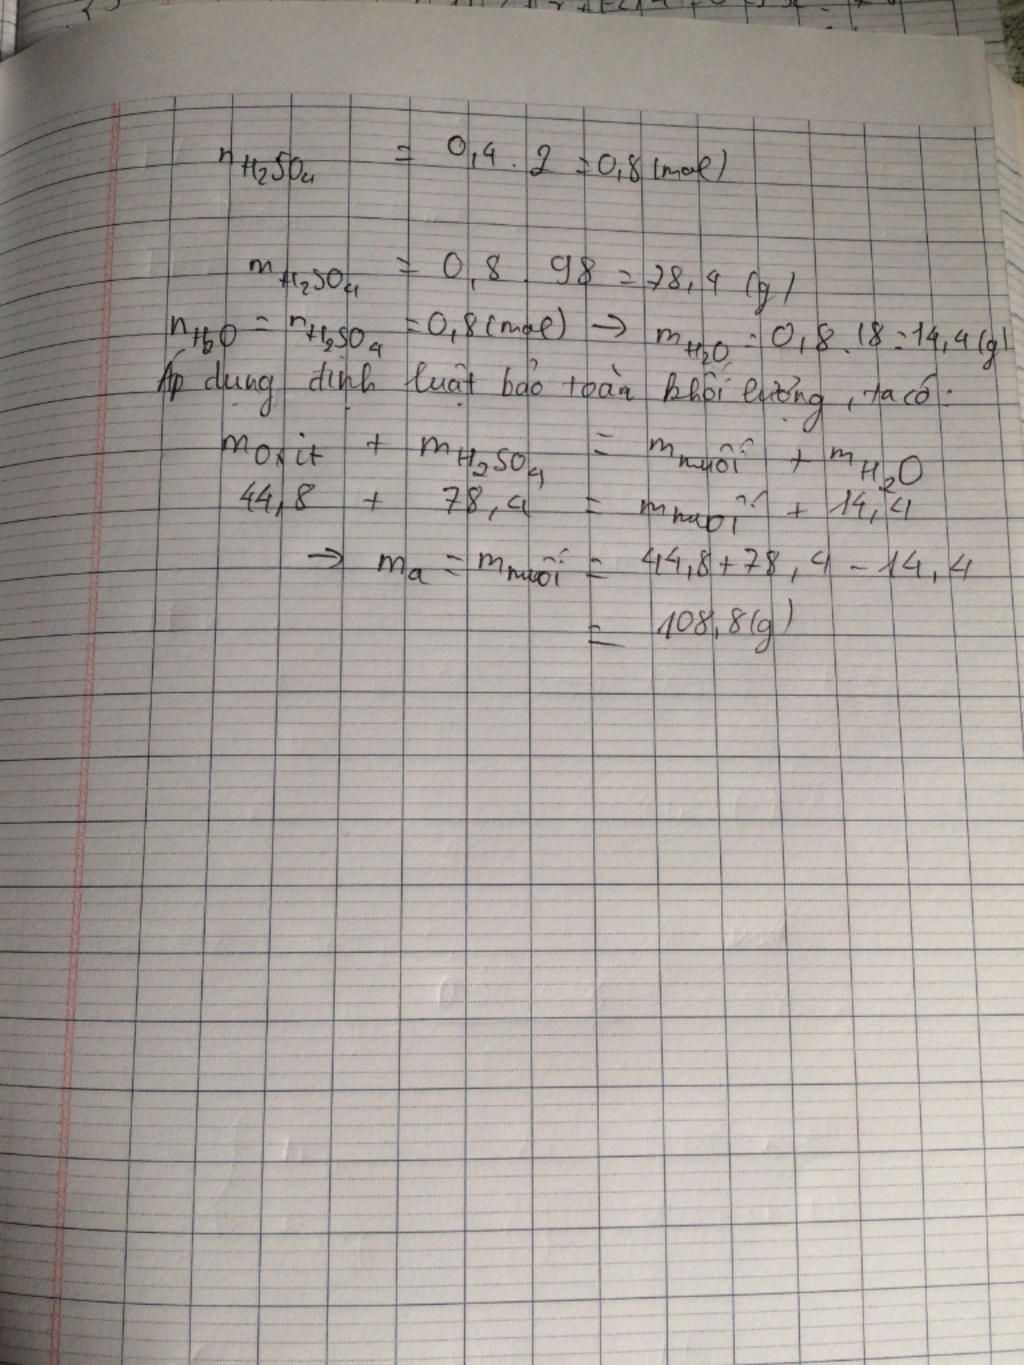 nH₂SO₄ = 0,4 . 2 = 0,8 (mol)
mH₂SO₄ = 0,8 . 98 = 78,4 (g)
nH₂O = nH₂SO₄ = 0,8 (mol) → mH₂O = 0,8 . 18 = 14,4 (g)
Áp dụng định luật bảo toàn khối lượng, ta có:
mOxit + mH₂SO₄ = mmuối + mH₂O
44,8 + 78,4 = mmuối + 14,4
→ ma = mmuối = 44,8 + 78,4 - 14,4
= 108,8 (g)